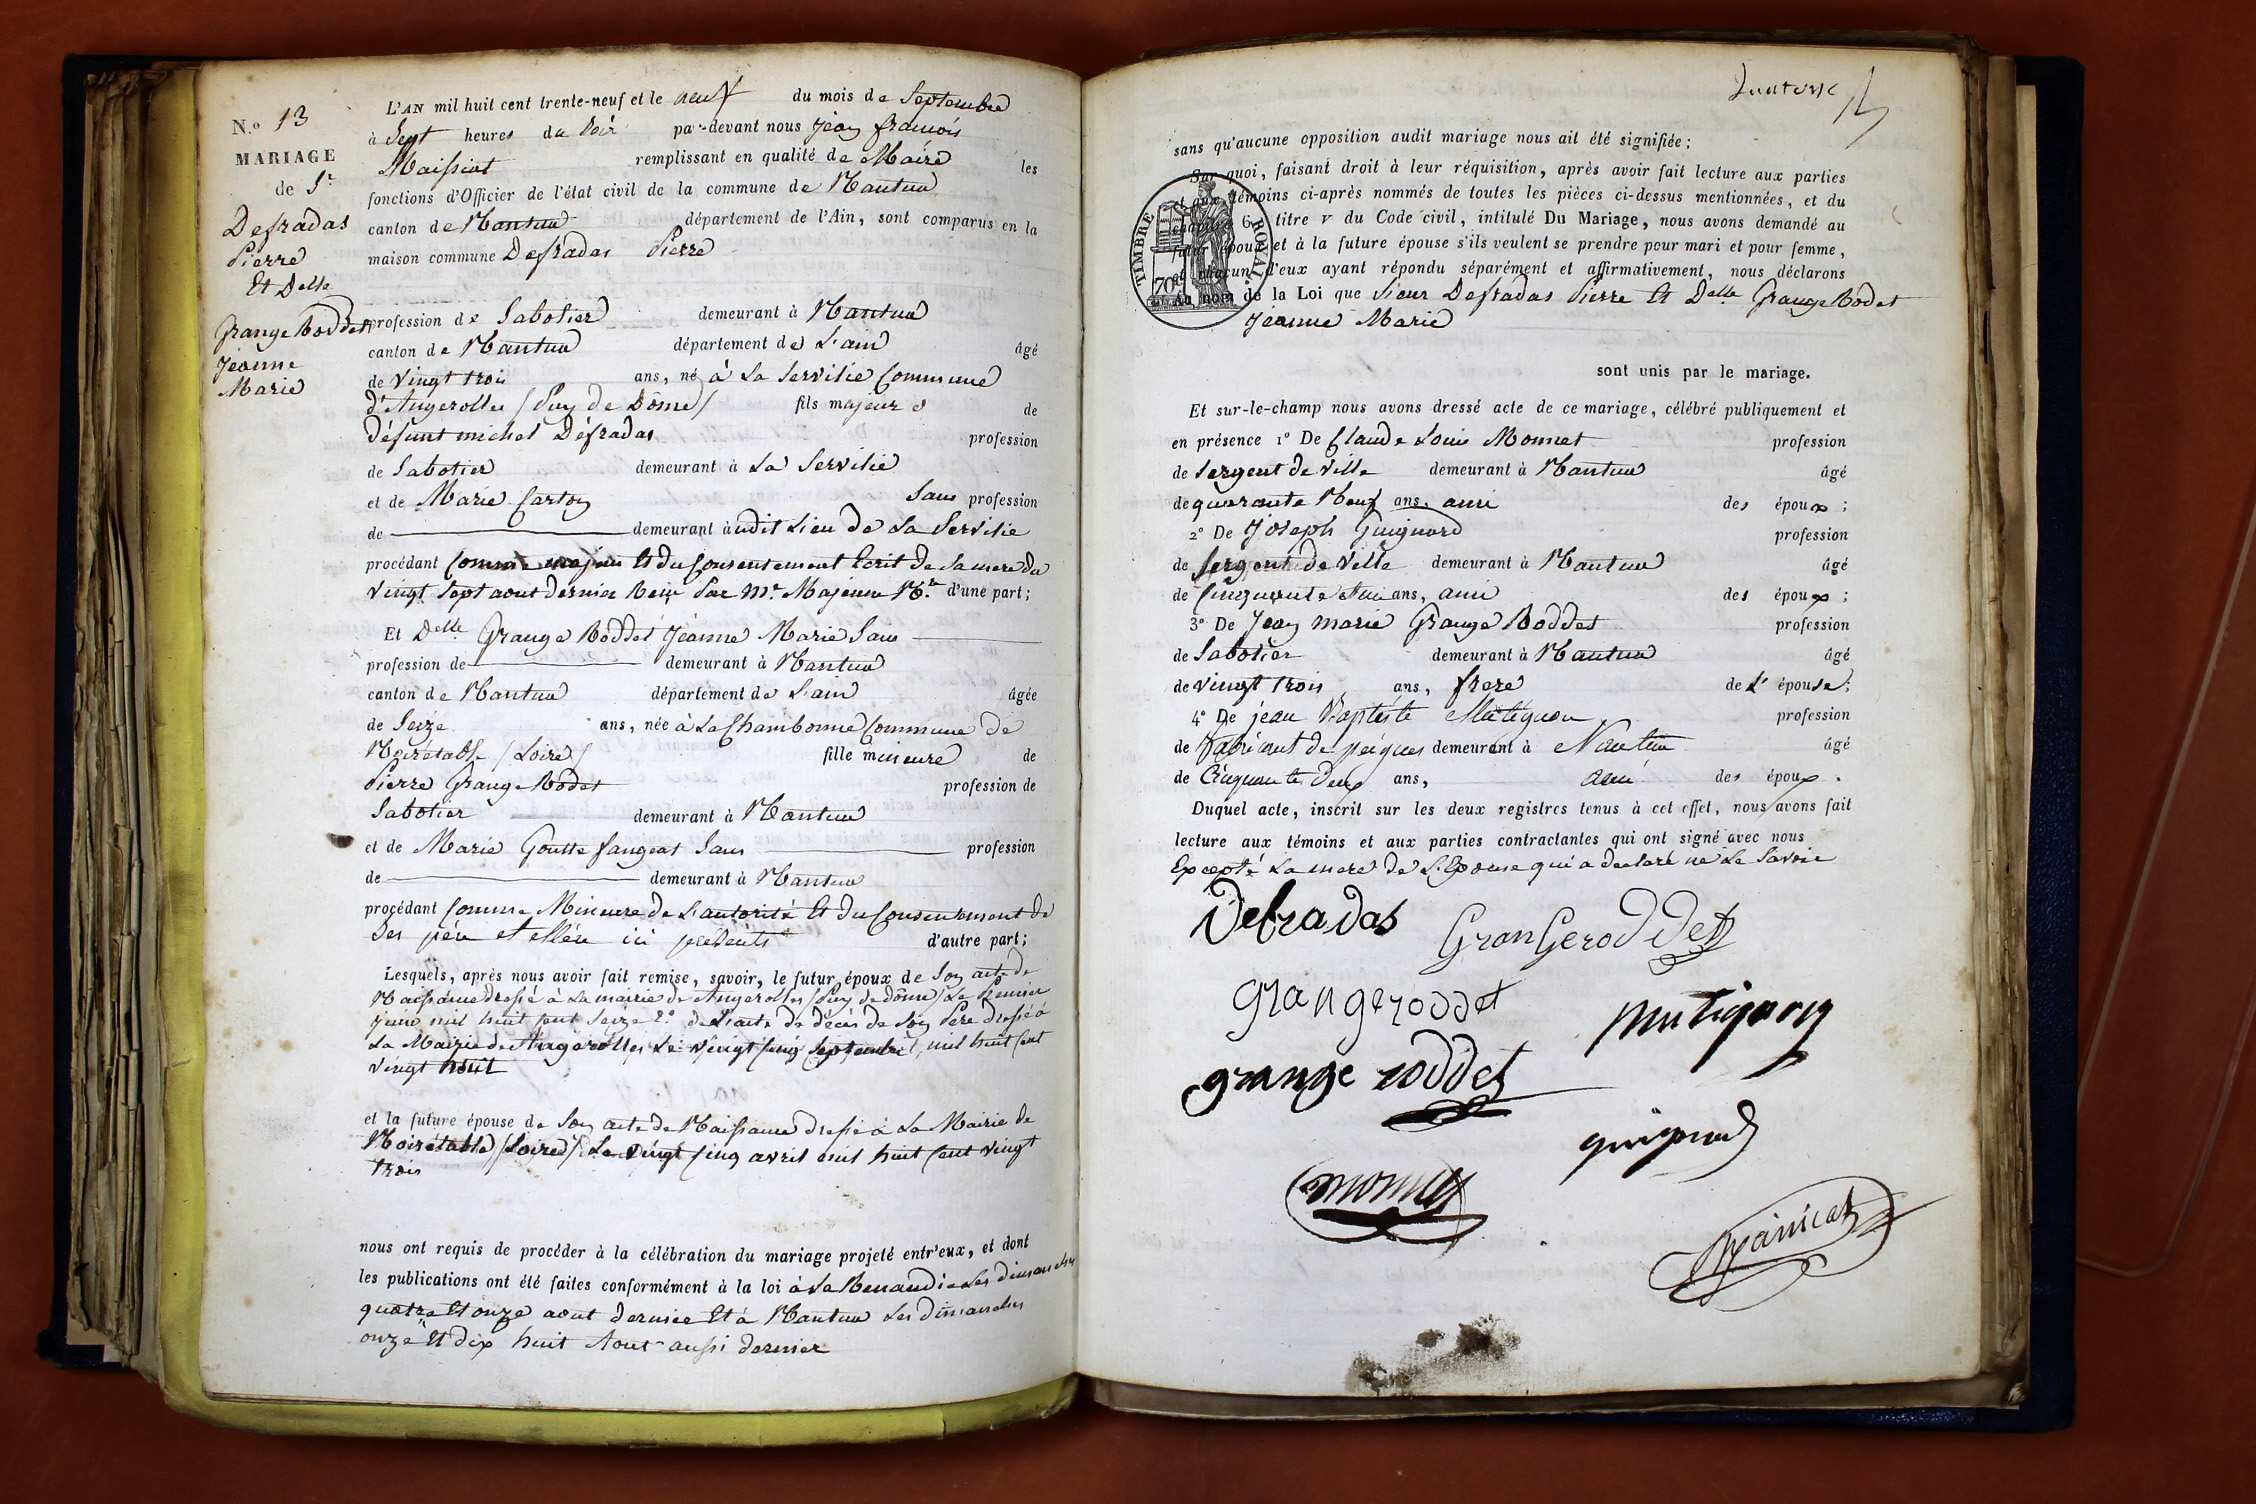 N.o 13
MARIAGE
de Sr
Defradas
Pierre
Et Delle
Grange Roddet
Jeanne
Marie
L'AN mil huit cent trente-neuf et le neuf du mois de Septembre
à Sept heures du Soir par-devant nous Jean françois
Maissiat remplissant en qualité de Maire les
fonctions d'Officier de l'état civil de la commune de Nantua
canton de Nantua département de l'Ain, sont comparus en la
maison commune Defradas Pierre
profession de Sabotier demeurant à Nantua
canton de Nantua département de L'ain âgé
de vingt trois ans, né à La Servilie Commune
d'Augerolles (Puy de Dôme) fils majeur de
défunt michel Défradas profession
de Sabotier demeurant à La Servilie
et de Marie Carton Sans profession
de demeurant audit Lieu de La Servilie
procédant Comme majeur Et du Consentement Ecrit de Sa mere du
vingt Sept aout dernier Reçu Par Me Majeune Nre d'une part;
Et Delle Grange Roddet Jeanne Marie Sans
profession de demeurant à Nantua
canton de Nantua département de L'ain âgée
de Seize ans, née à La Chambonne Commune de
Noirétable (Loire) fille mineure de
Pierre Grange Rodet profession de
Sabotier demeurant à Nantua
et de Marie Goutte fangeas Sans profession
de demeurant à Nantua
procédant Comme Mineure de L'autorité Et du Consentement de
Ses père et Mère ici présents d'autre part;
Lesquels, après nous avoir fait remise, savoir, le futur époux de Son acte de
Naissance dressé à La mairie de Augerolles (Puy de dôme) Le Premier
Juin mil huit Cent Seize 2o de L'acte de décès de Son Père dressé à
La Mairie de Augerolles Le vingt Cinq Septembre mil huit Cent
vingt huit
et la future épouse de Son acte de Naissance dressé à La Mairie de
Noirétable (Loire) Le vingt Cinq avril mil huit Cent vingt
trois
nous ont requis de procéder à la célébration du mariage projeté entr'eux, et dont
les publications ont été faites conformément à la loi à La Renaudie Les dimanches
quatre Et onze aout dernier Et à Nantua Les dimanches
onze Et dix huit Aout aussi dernier
sans qu'aucune opposition audit mariage nous ait été signifiée;
Sur quoi, faisant droit à leur réquisition, après avoir fait lecture aux parties
et aux témoins ci-après nommés de toutes les pièces ci-dessus mentionnées, et du
chapitre 6 titre V du Code civil, intitulé Du Mariage, nous avons demandé au
futur époux et à la future épouse s'ils veulent se prendre pour mari et pour femme,
et chacun d'eux ayant répondu séparément et affirmativement, nous déclarons
Au nom de la Loi que Sieur Defradas Pierre Et Delle Grange Rodet
Jeanne Marie
TIMBRE ROYAL
70c
sont unis par le mariage.
Et sur-le-champ nous avons dressé acte de ce mariage, célébré publiquement et
en présence 1o De Claude Louis Monnet profession
de Sergent de Ville demeurant à Nantua âgé
de quarante Neuf ans, ami des époux;
2o De Joseph Guignard profession
de Sergent de Ville demeurant à Nantua âgé
de Cinquante ans, ami des époux;
3o De Jean marie Grange Roddet profession
de Sabotier demeurant à Nantua âgé
de vingt trois ans, frere de L' épouse;
4o De jean Baptiste Mutignon profession
de fabricant de peignes demeurant à Nantua âgé
de Cinquante deux ans, ami des époux.
Duquel acte, inscrit sur les deux registres tenus à cet effet, nous avons fait
lecture aux témoins et aux parties contractantes qui ont signé avec nous
Excepté La mere de L'Epouse qui a declaré ne Le Savoir
Defradas GranGeroddet
grangeroddet
Mutignon
grange roddet
guignard
monnet